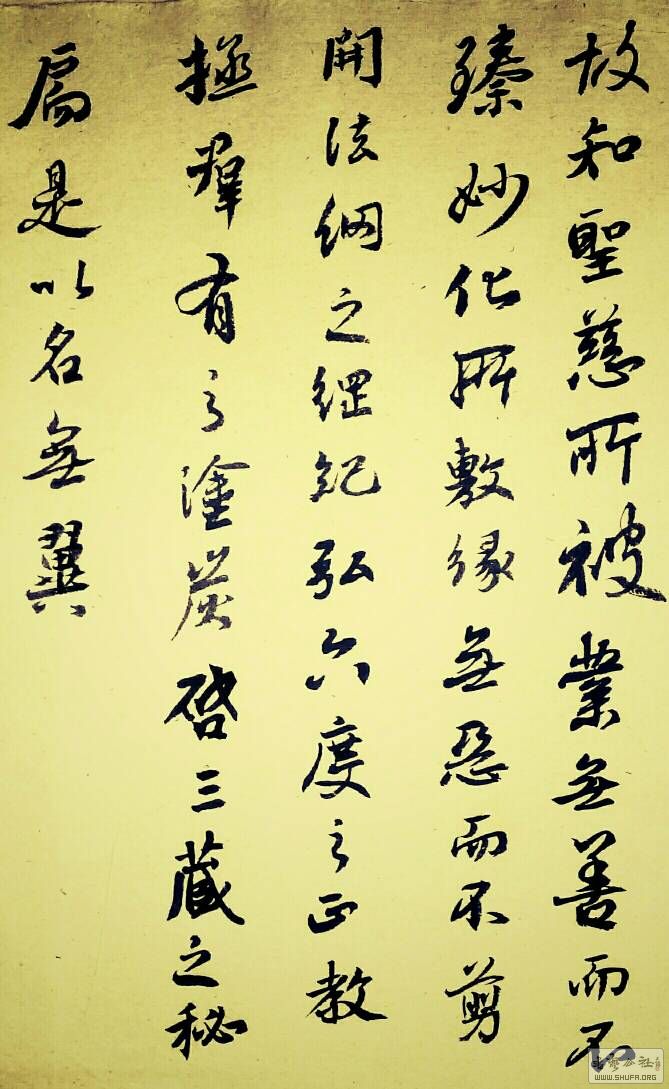 故知聖慈所被業無善而不
臻妙化所敷緣無惡而不翦
開法網之綱紀弘六度之正教
拯群有之塗炭啓三藏之秘
扃是以名無翼
WWW.SHUFA.ORG